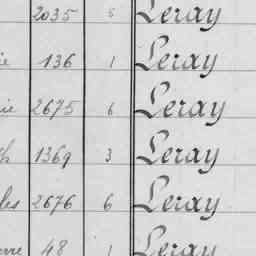 2035 5 Leray
ie 136 1 Leray
ie 2675 6 Leray
h 1369 3 Leray
les 2676 6 Leray
erre 48 1 Leray